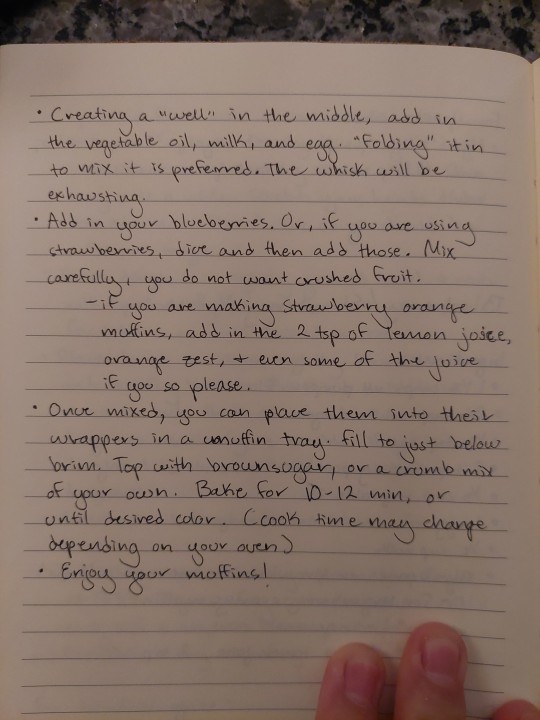 • Creating a "well" in the middle, add in
the vegetable oil, milk, and egg. "Folding" it in
to mix it is preferred. The whisk will be
exhausting.
• Add in your blueberries. Or, if you are using
strawberries, dice and then add those. Mix
carefully, you do not want crushed fruit.
- if you are making strawberry orange
muffins, add in the 2 tsp of lemon joice,
orange zest, + even some of the juice
if you so please.
• Once mixed, you can place them into their
wrappers in a muffin tray. fill to just below
brim. Top with brownsugar, or a crumb mix
of your own. Bake for 10-12 min, or
until desired color. (cook time may change
depending on your oven)
• Enjoy your muffins!